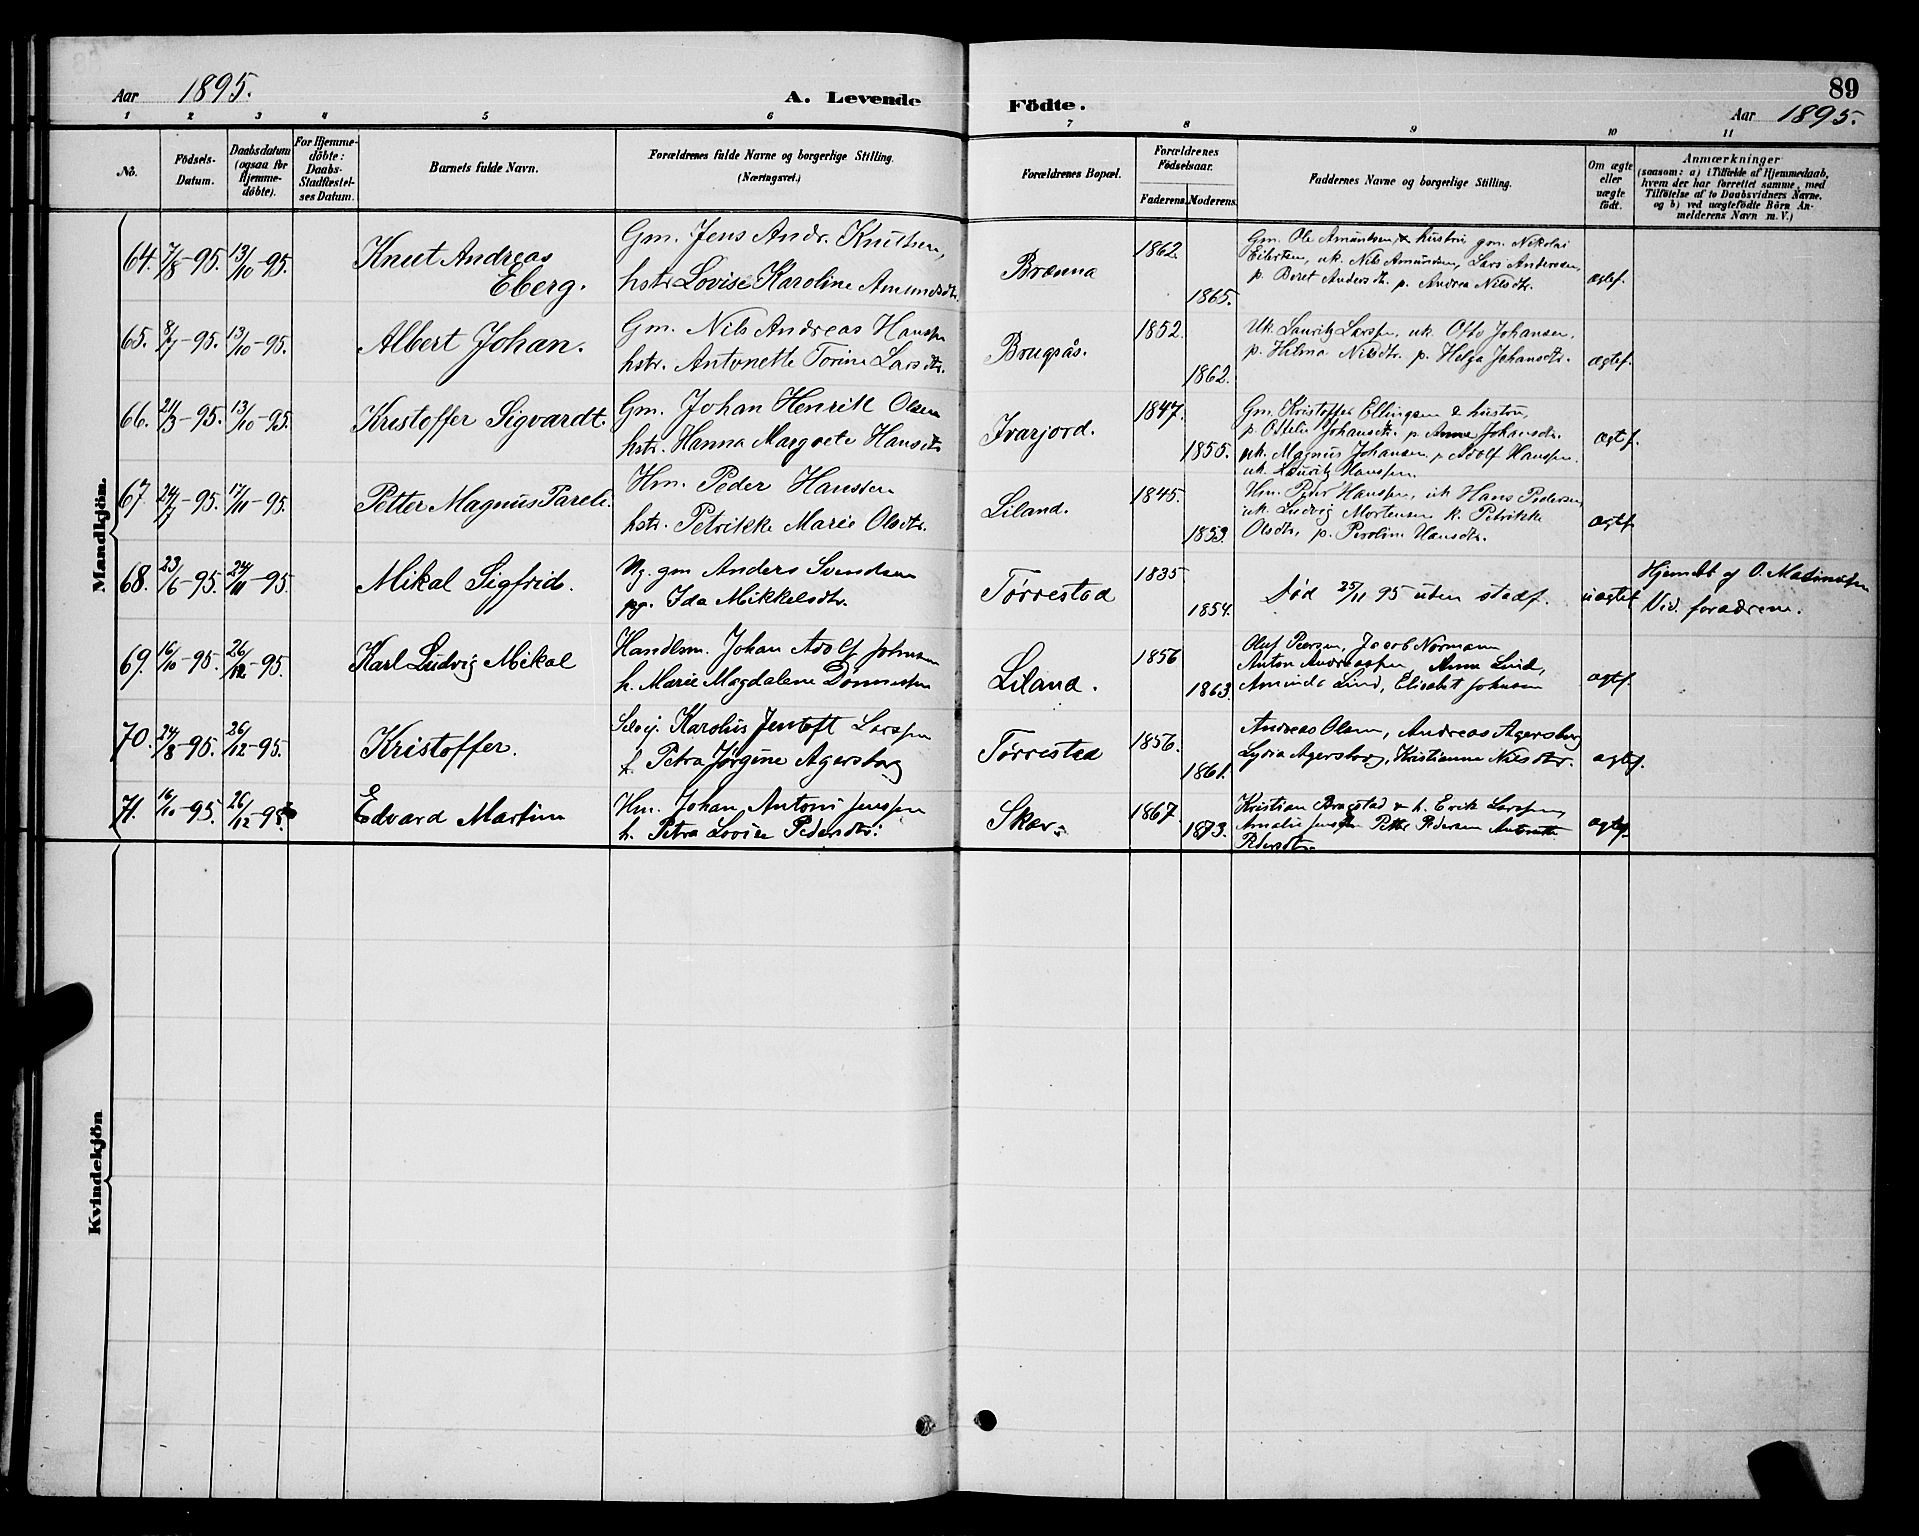 89
Aar 1895. A. Levende Födte. Aar 1895.
1 2 3 4 5 6 7 8 9 10 11
No. Födsels-Datum. Daabsdatum (ogsaa for Hjemmedöbte). For Hjemmedöbte: Daabs-Stadfæstelses Datum. Barnets fulde Navn. Forældrenes fulde Navne og borgerlige Stilling. (Næringsvei.) Forældrenes Bopæl. Forældrenes Födselsaar. Faderens. Moderens. Faddernes Navne og borgerlige Stilling. Om ægte eller uægte födt. Anmærkninger (saasom: a) i Tilfælde af Hjemmedaab, hvem der har forrettet samme, med Tilföielse af to Daabsvidners Navne, og b) ved uægtefödte Börn Anmelderens Navn m. V.)
Mandkjön.
64. 7/8-95. 13/10-95. Knut Andreas Eberg. Gm. Jens Andr. Knutsen, hstr. Lovise Karoline Amundsdtr. Brænna 1862. 1865. Gm. Ole Amundsen & hustru gm. Nikolai
Eilertsen, uk. Nils Amundsen, Lars Andersen,
p. Beret Andersdtr. p. Andrea Nilsdtr. ægtef.
65. 8/7-95. 13/10-95. Albert Johan. Gm. Nils Andreas Hanssen hstr. Antonette Torine Larsdtr. Brugsås. 1852. 1862. Uk. Lauritz Larssen, uk. Otto Johansen,
p. Hilma Nilsdtr. p. Helga Johansdtr. ægtef.
66. 21/3-95. 13/10-95. Kristoffer Sigvardt. Gm. Johan Henrik Olsen hstr. Hanna Margrete Hansdtr Ivarjord. 1847. 1855. Gm. Kristoffer Ellingsen & hustru,
p. Ottelie Johansdtr. p. Anna Johansdtr.
uk. Magnus Johansen, p. Adolf Hanssen.
uk. Lauritz Hanssen. ægtef.
67. 24/7-95. 17/11-95. Petter Magnus Pareli. Hm. Peder Hanssen hstr. Petrikke Marie Olsdtr. Liland. 1845. 1853. Hm. Peder Hanssen, uk Hans Pedersen,
uk. Ludvig Mortensen k. Petrikke
Olsdtr, p. Peroline Hansdtr. ægtef.
68. 23/6-95. 24/11-95. Mikal Sigfrid. Ug. gm Anders Svendsen pg. Ida Mikkelsdtr. Tørrestad 1835 1854. Død 25/11 95 uden stadf. uægtef Hjemdbt af O.
Vid. forældrene.
69. 16/10-95. 26/12-95. Karl Ludvig Mikal Handlsm. Johan Adolf Johnsen h. Marie Magdalene Dønnessen Liland. 1856 1863. Oluf Peersen, Jacob Normann
Anton Andreassen, Anna Lind,
Aminda Lind, Elisabet Johnsen ægtf.
70. 24/8-95. 26/12-95. Kristoffer. Selvej. Karolus Jentoft Larssen f. Petra Jørgine Agersborg Tørrestad 1856. 1861. Andreas Olsen, Andreas Agersborg
Lydia Agersborg, Kristianna Nilsdtr. ægtef.
71. 16/10-95. 26/12-95. Edvard Martin Hm. Johan Antoni Jenssen h. Petra Lovise Pedersdtr: Skar. 1867. 1873. Kristian Bragstad & h. Erik Larssen,
Amalie Jenssen Petter Pedersen Antonette
Pedersdtr. ægtef.
Kvindekjön